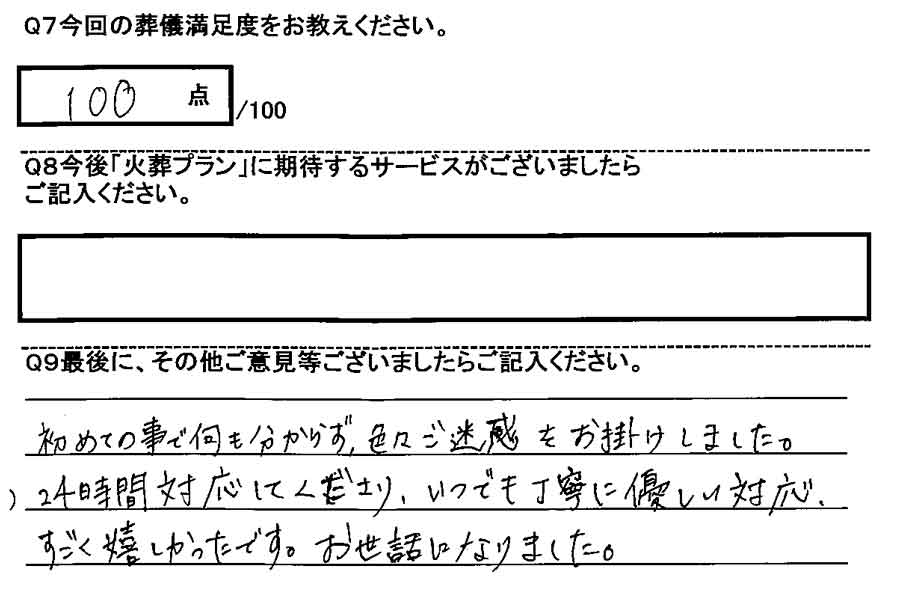 Q7今回の葬儀満足度をお教えください。
100 点 /100
Q8今後「火葬プラン」に期待するサービスがございましたら
ご記入ください。
Q9最後に、その他ご意見等ございましたらご記入ください。
初めての事で何も分からず、色々ご迷感をお掛けしました。
24時間対応してくださり、いつでも丁寧に優しい対応、
すごく嬉しかったです。お世話になりました。